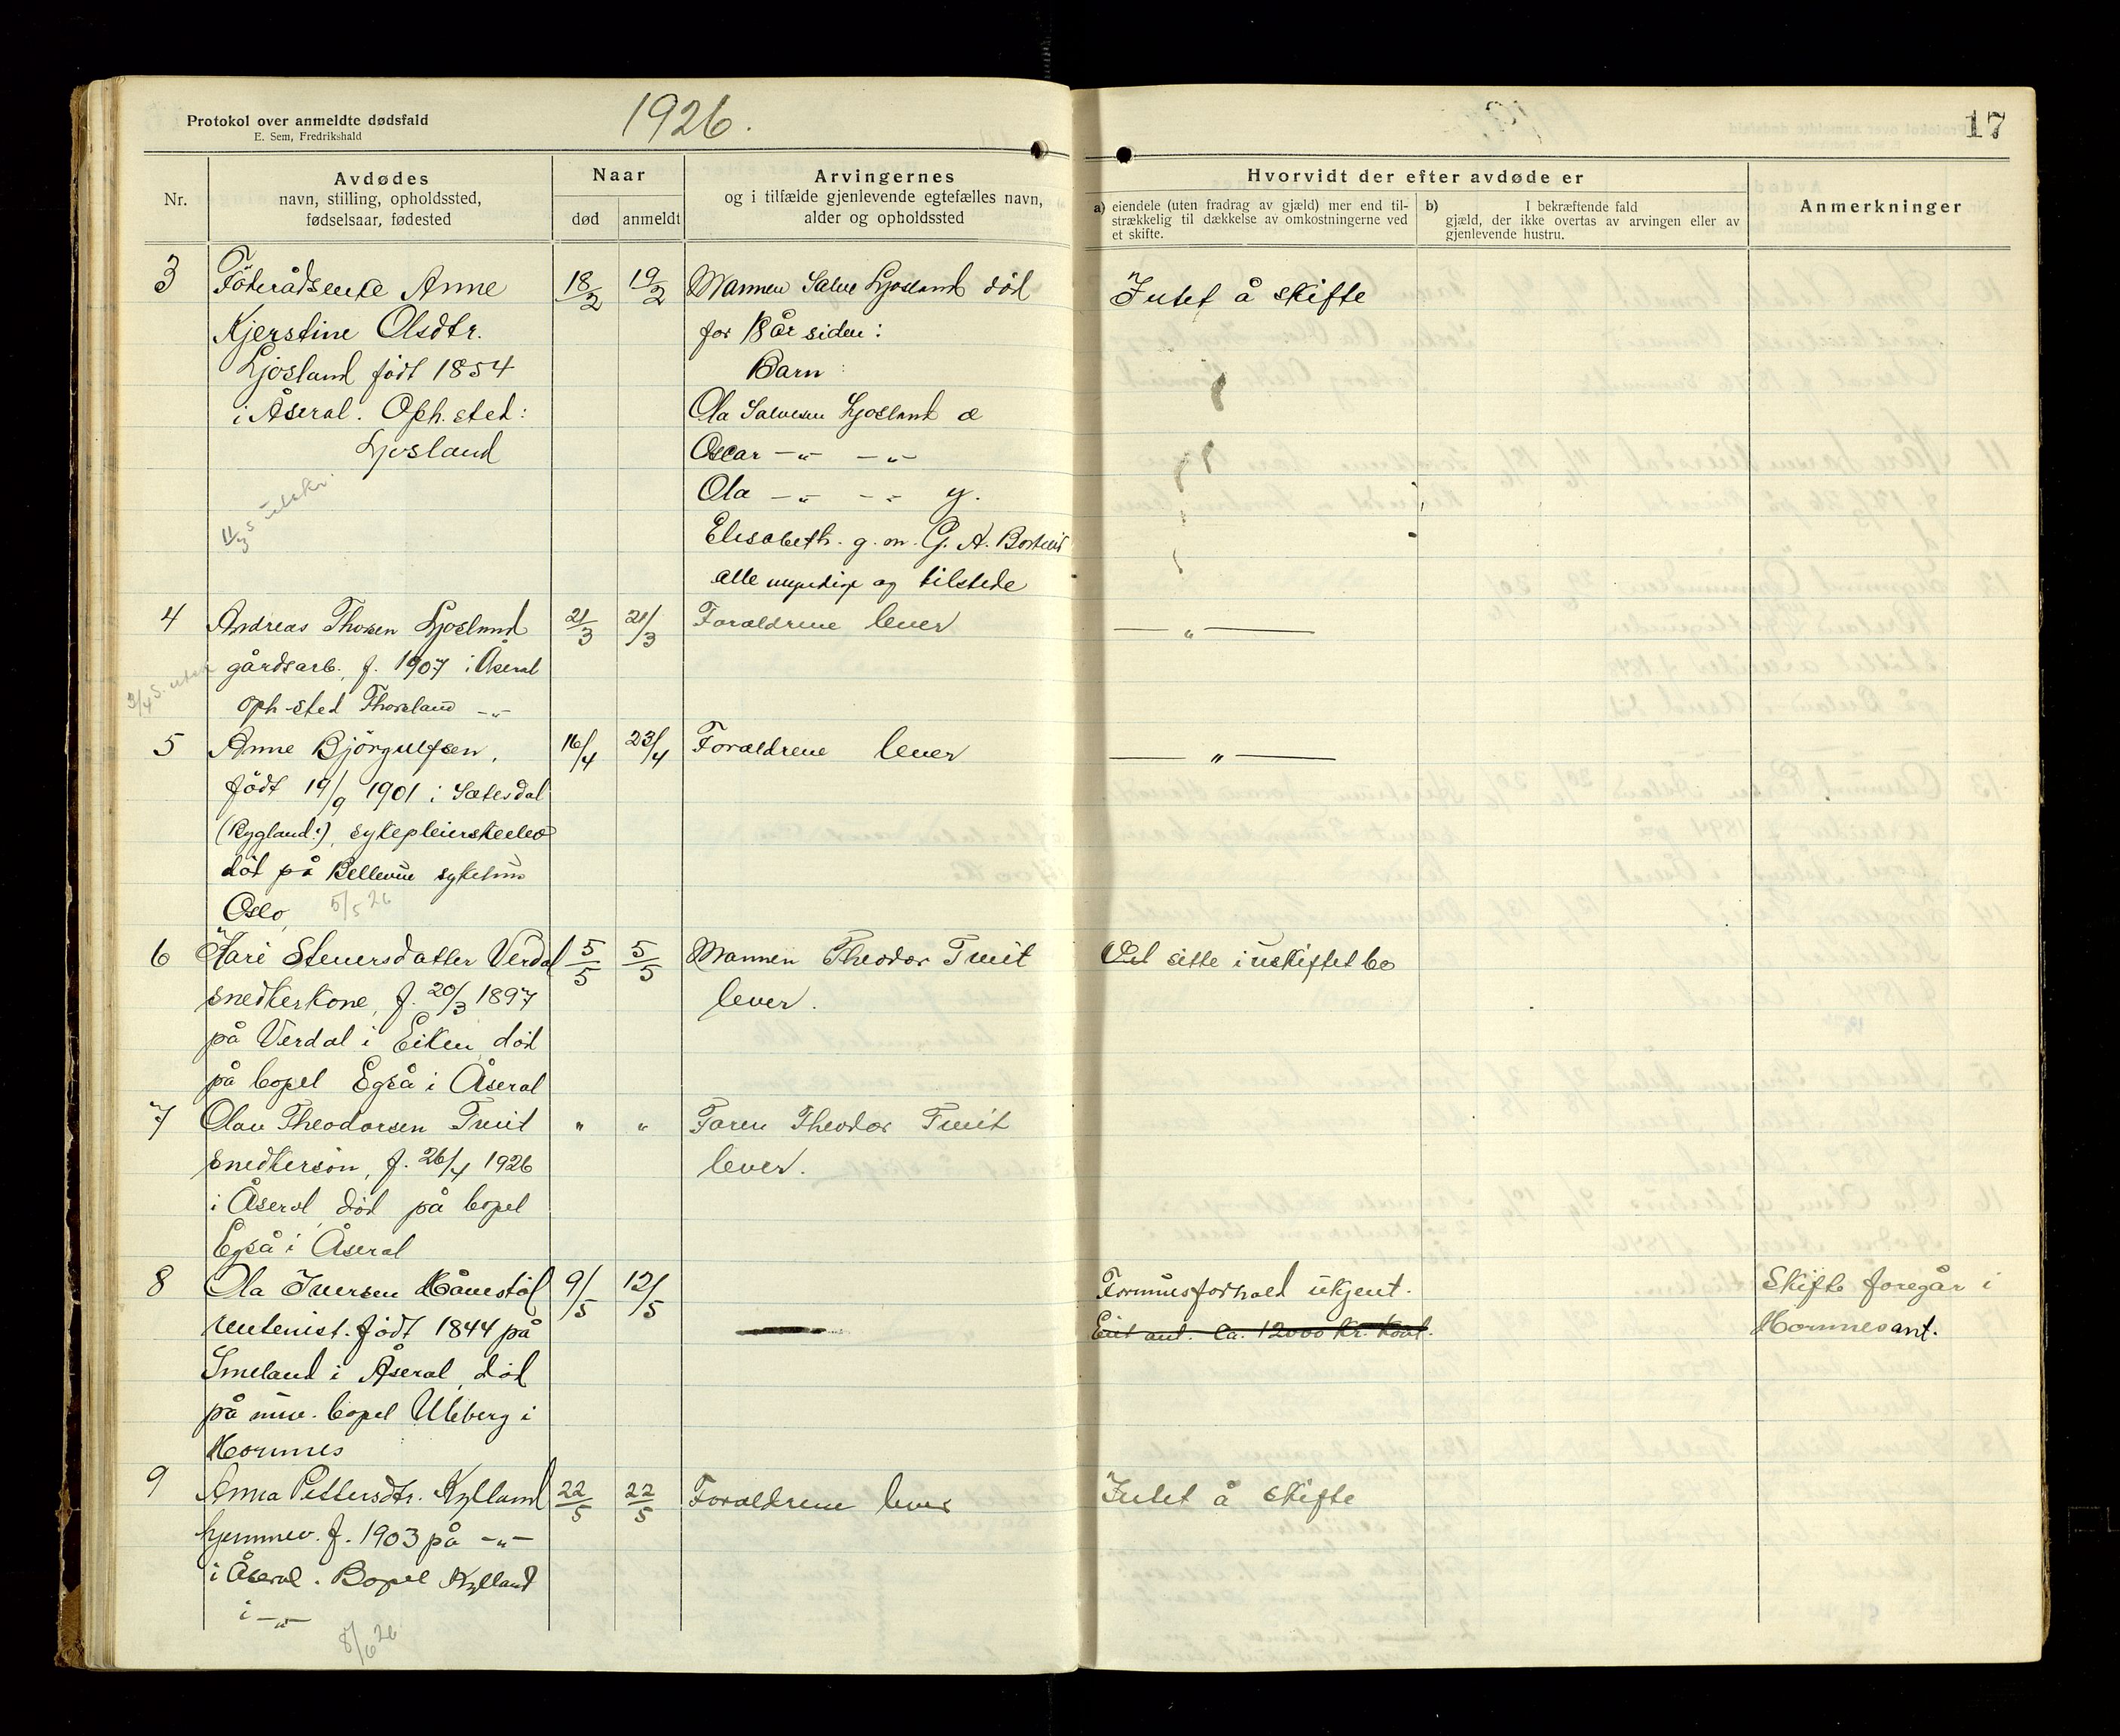 Protokol over anmeldte dødsfald
E. Sem, Fredrikshald
1926.
17
Nr.
Avdødes
navn, stilling, opholdssted,
fødselsaar, fødested
Naar
død
anmeldt
Arvingernes
og i tilfælde gjenlevende egtefælles navn,
alder og opholdssted
Hvorvidt der efter avdøde er
a) eiendele (uten fradrag av gjæld) mer end til-
strækkelig til dækkelse av omkostningerne ved
et skifte.
b) I bekræftende fald
gjæld, der ikke overtas av arvingen eller av
gjenlevende hustru.
Anmerkninger
3
Föderådsenke Anne
Kjerstine Olsdtr.
Ljosland født 1854
i Åseral. Oph.sted:
Ljosland
11/3 s
18/2
19/2
Mannen Salve Ljosland död
for 18 år siden:
Barn:
Ola Salvesen Ljosland æ
Oscar -"- -"-
Ola -"- -"- y.
Elisabeth. g. m. G. A.
alle myndige og tilstede
Intet å skifte
4
Andreas Thorsen Ljosland
gårdsarb., f. 1907 i Åseral
oph-sted Thorsland -"-
3/4 s.
21/3
21/3
Foreldrene lever
—— " ——
5
Anne Björgulfsen,
födt 19/9 1901 i Sætesdal
(Bygland?), sykepleierskeelev
död på Bellevue sykehus
Oslo
5/5 26
16/4
23/4
Foreldrene lever
—— " ——
6
Kari Steversdatter Verdal
snedkerkone, f. 20/3 1897
på Verdal i Eiken, död
på bopel Egså i Åseral
5/5
5/5
Mannen Theodor Tveit
lever.
Vil sitte i uskiftet bo
7
Olav Theodorsen Tveit
snedkersön, f. 26/4 1926
i Åseral, död på bopel
Egså i Åseral
"
"
Faren Theodor Tveit
lever.
8
Ola Iversen Håvestöl
rentenist. födt 1844 på
Smeland i Åseral, död
på nuv. bopel Uleberg i
Hornnes
9/5
12/5
Formuesforhold ukjent.
ant. ca. 12000 kr.
Skifte foregår i
Hornnes ant.
9
Anna Pettersdtr. Kylland
hjemmev. f. 1903 på -"-
i Åseral. Bopel Kylland
i -"-
8/6 26
22/5
22/5
Foreldrene lever
Intet å skifte